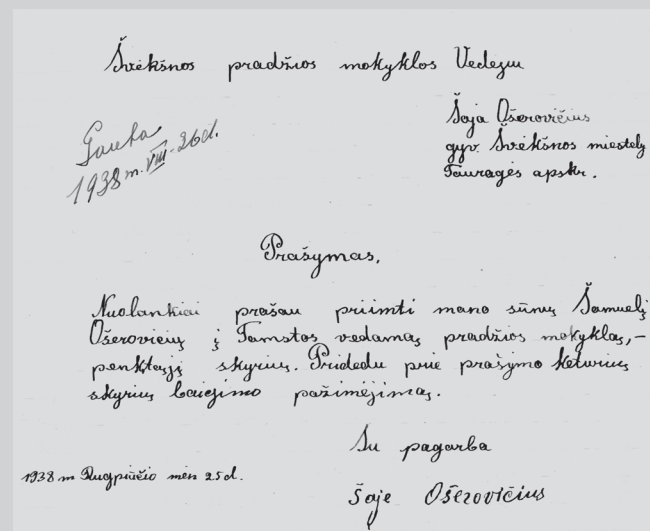 Švėkšnos pradžios mokyklos Vedėjui
Gauta
1938 m. VIII-26d.
Šaja Ošerovičius
gyv. Švėkšnos miestely
Tauragės apskr.
Prašymas,
Nuolankiai prašau priimti mano sūnų Šamuelį
Ošerovičių į Tamstos vedamą pradžios mokyklą,-
penktąjį skyrių. Pridedu prie prašymo keturių
skyrių baigimo pažimėjimą.
Su pagarba
1938 m Rugpiučio mėn 25d.
Šaje Ošerovičius